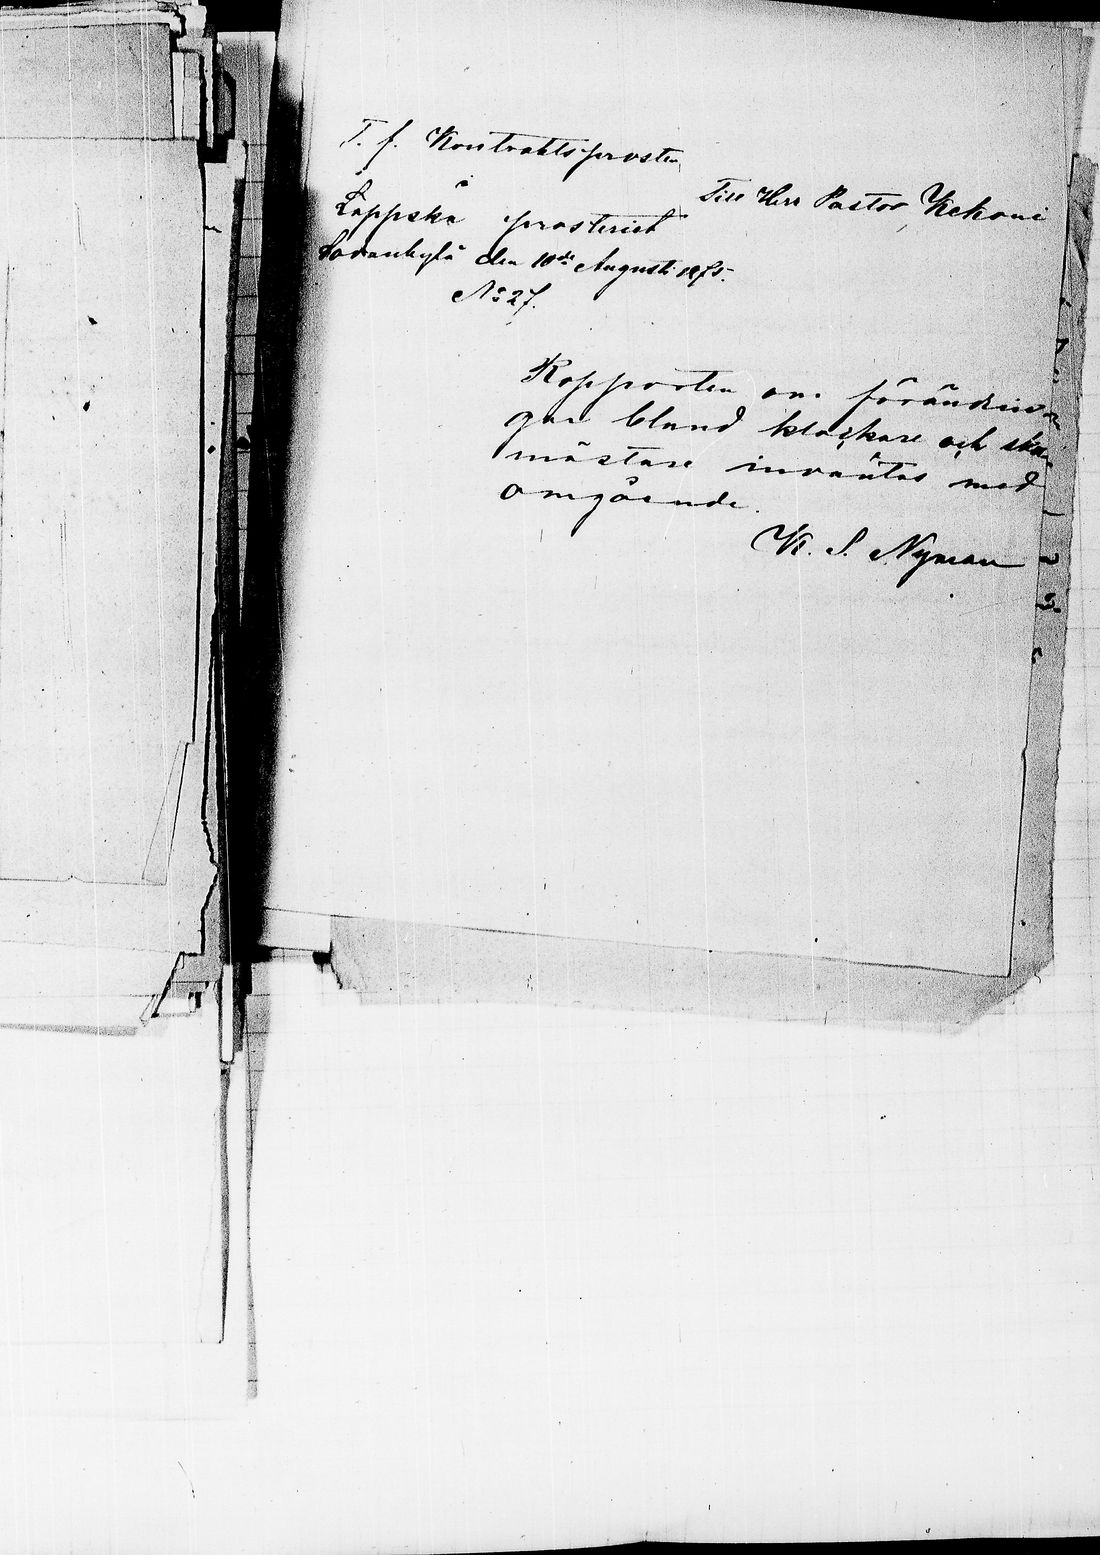 T. f. Kontraktsprosten
i
Lappska prosteriet
Till Herr Pastor Kekoni
Sodankylä den 10de Augusti 1875.
No 27.
Rapporten om förändrin-
gar bland klockare och sko-
mästare inväntas med
omgående.
K. S. Nyman